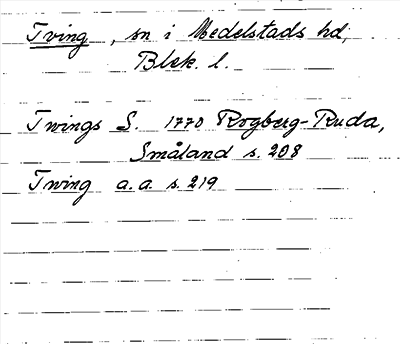 Tving, sn i Medelstads hd,
Blek. l.
Twings S. 1770 Rogberg-Ruda,
Småland s. 208
Twing a.a. s. 219